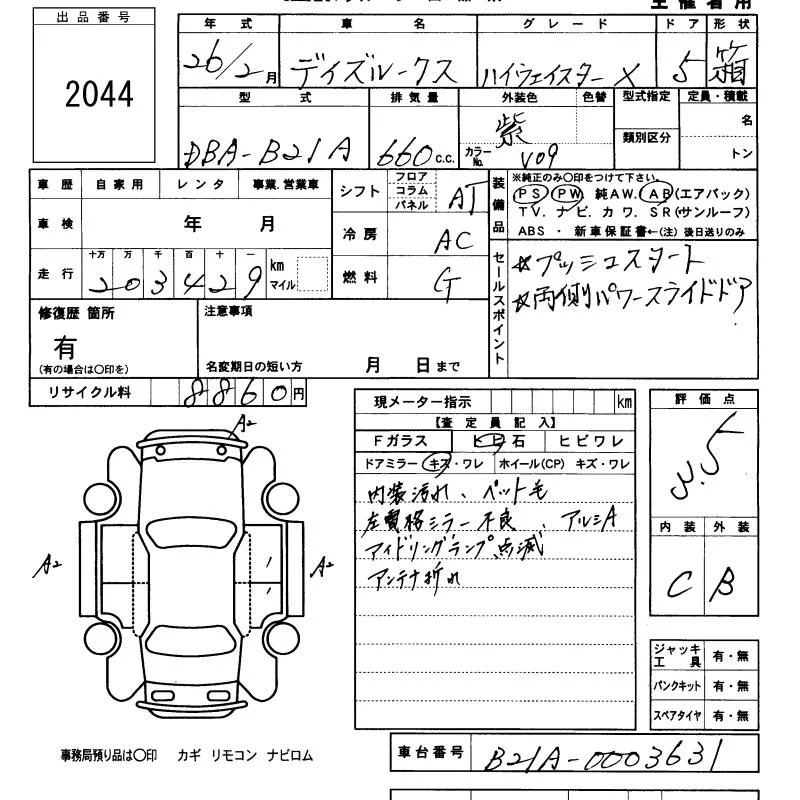 主催者用
出品番号
2044
年式 車名 グレード ドア 形状
26/2月 デイズルークス ハイウェイスター X 5 箱
型式 排気量 外装色 色替 型式指定 定員・積載
DBA-B21A 660 c.c. 紫 カラーNo. V09 類別区分 名
トン
車歴 自家用 レンタ 事業.営業車
車検 年 月
走行 十万 万 千 百 十 一 km マイル
203429
シフト フロア コラム パネル AT
冷房 AC
燃料 G
装備品
※純正のみ〇印をつけて下さい。
PS PW 純AW. AB(エアバック)
TV. ナビ. カワ. SR(サンルーフ)
ABS ・ 新車保証書←(注) 後日送りのみ
セールスポイント
☆プッシュスタート
☆両側パワースライドドア
修復歴 箇所
有
(有の場合は〇印を)
注意事項
名変期日の短い方 月 日まで
リサイクル料 8860円
現メーター指示 km
【査定員記入】
Fガラス ヒ石 ヒビワレ
ドアミラー キズ・ワレ ホイール(CP) キズ・ワレ
内装汚れ、ペット毛
左電格ミラー不良、アルミA
アイドリングランプ点滅
アンテナ折れ
評価点
3.5
内装 外装
C B
A2
A2 A2
ジャッキ工具 有・無
パンクキット 有・無
スペアタイヤ 有・無
事務局預り品は〇印 カギ リモコン ナビロム
車台番号 B21A-0003631